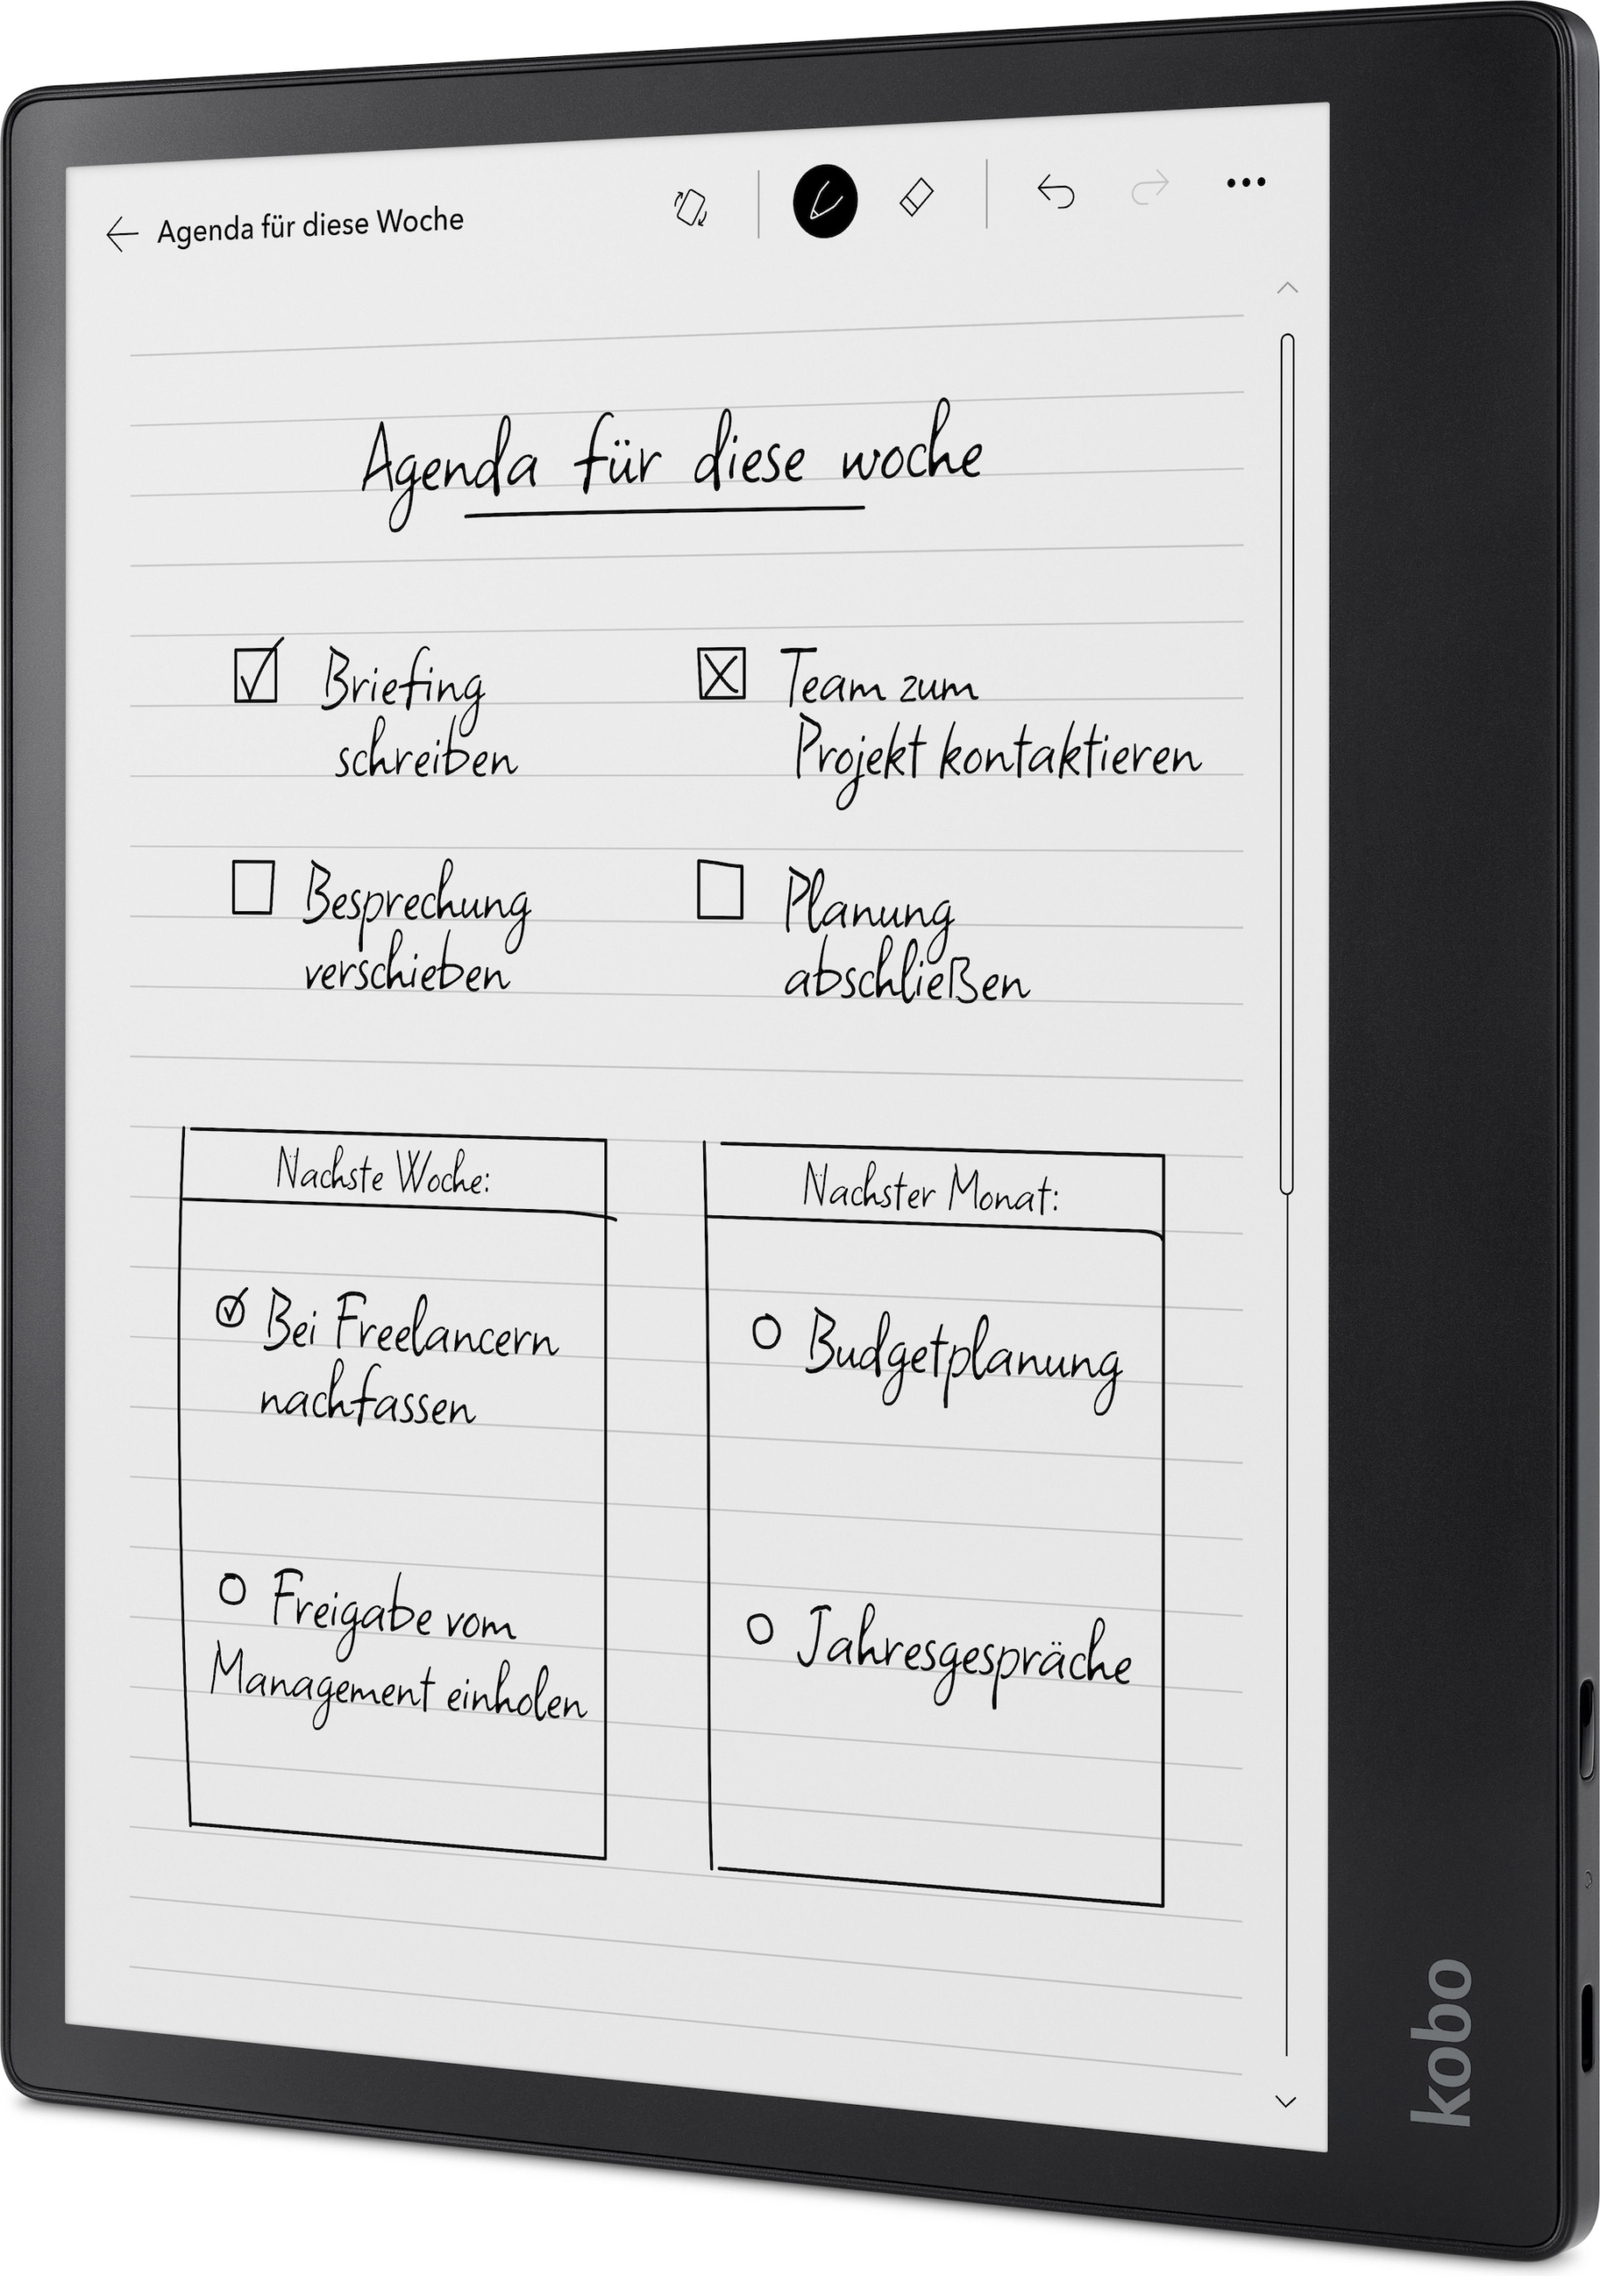 Agenda für diese Woche
Agenda für diese woche
Briefing
schreiben
Team zum
Projekt kontaktieren
Besprechung
verschieben
Planung
abschließen
Nachste Woche:
Bei Freelancern
nachfassen
Freigabe vom
Management einholen
Nachster Monat:
Budgetplanung
Jahresgespräche
kobo